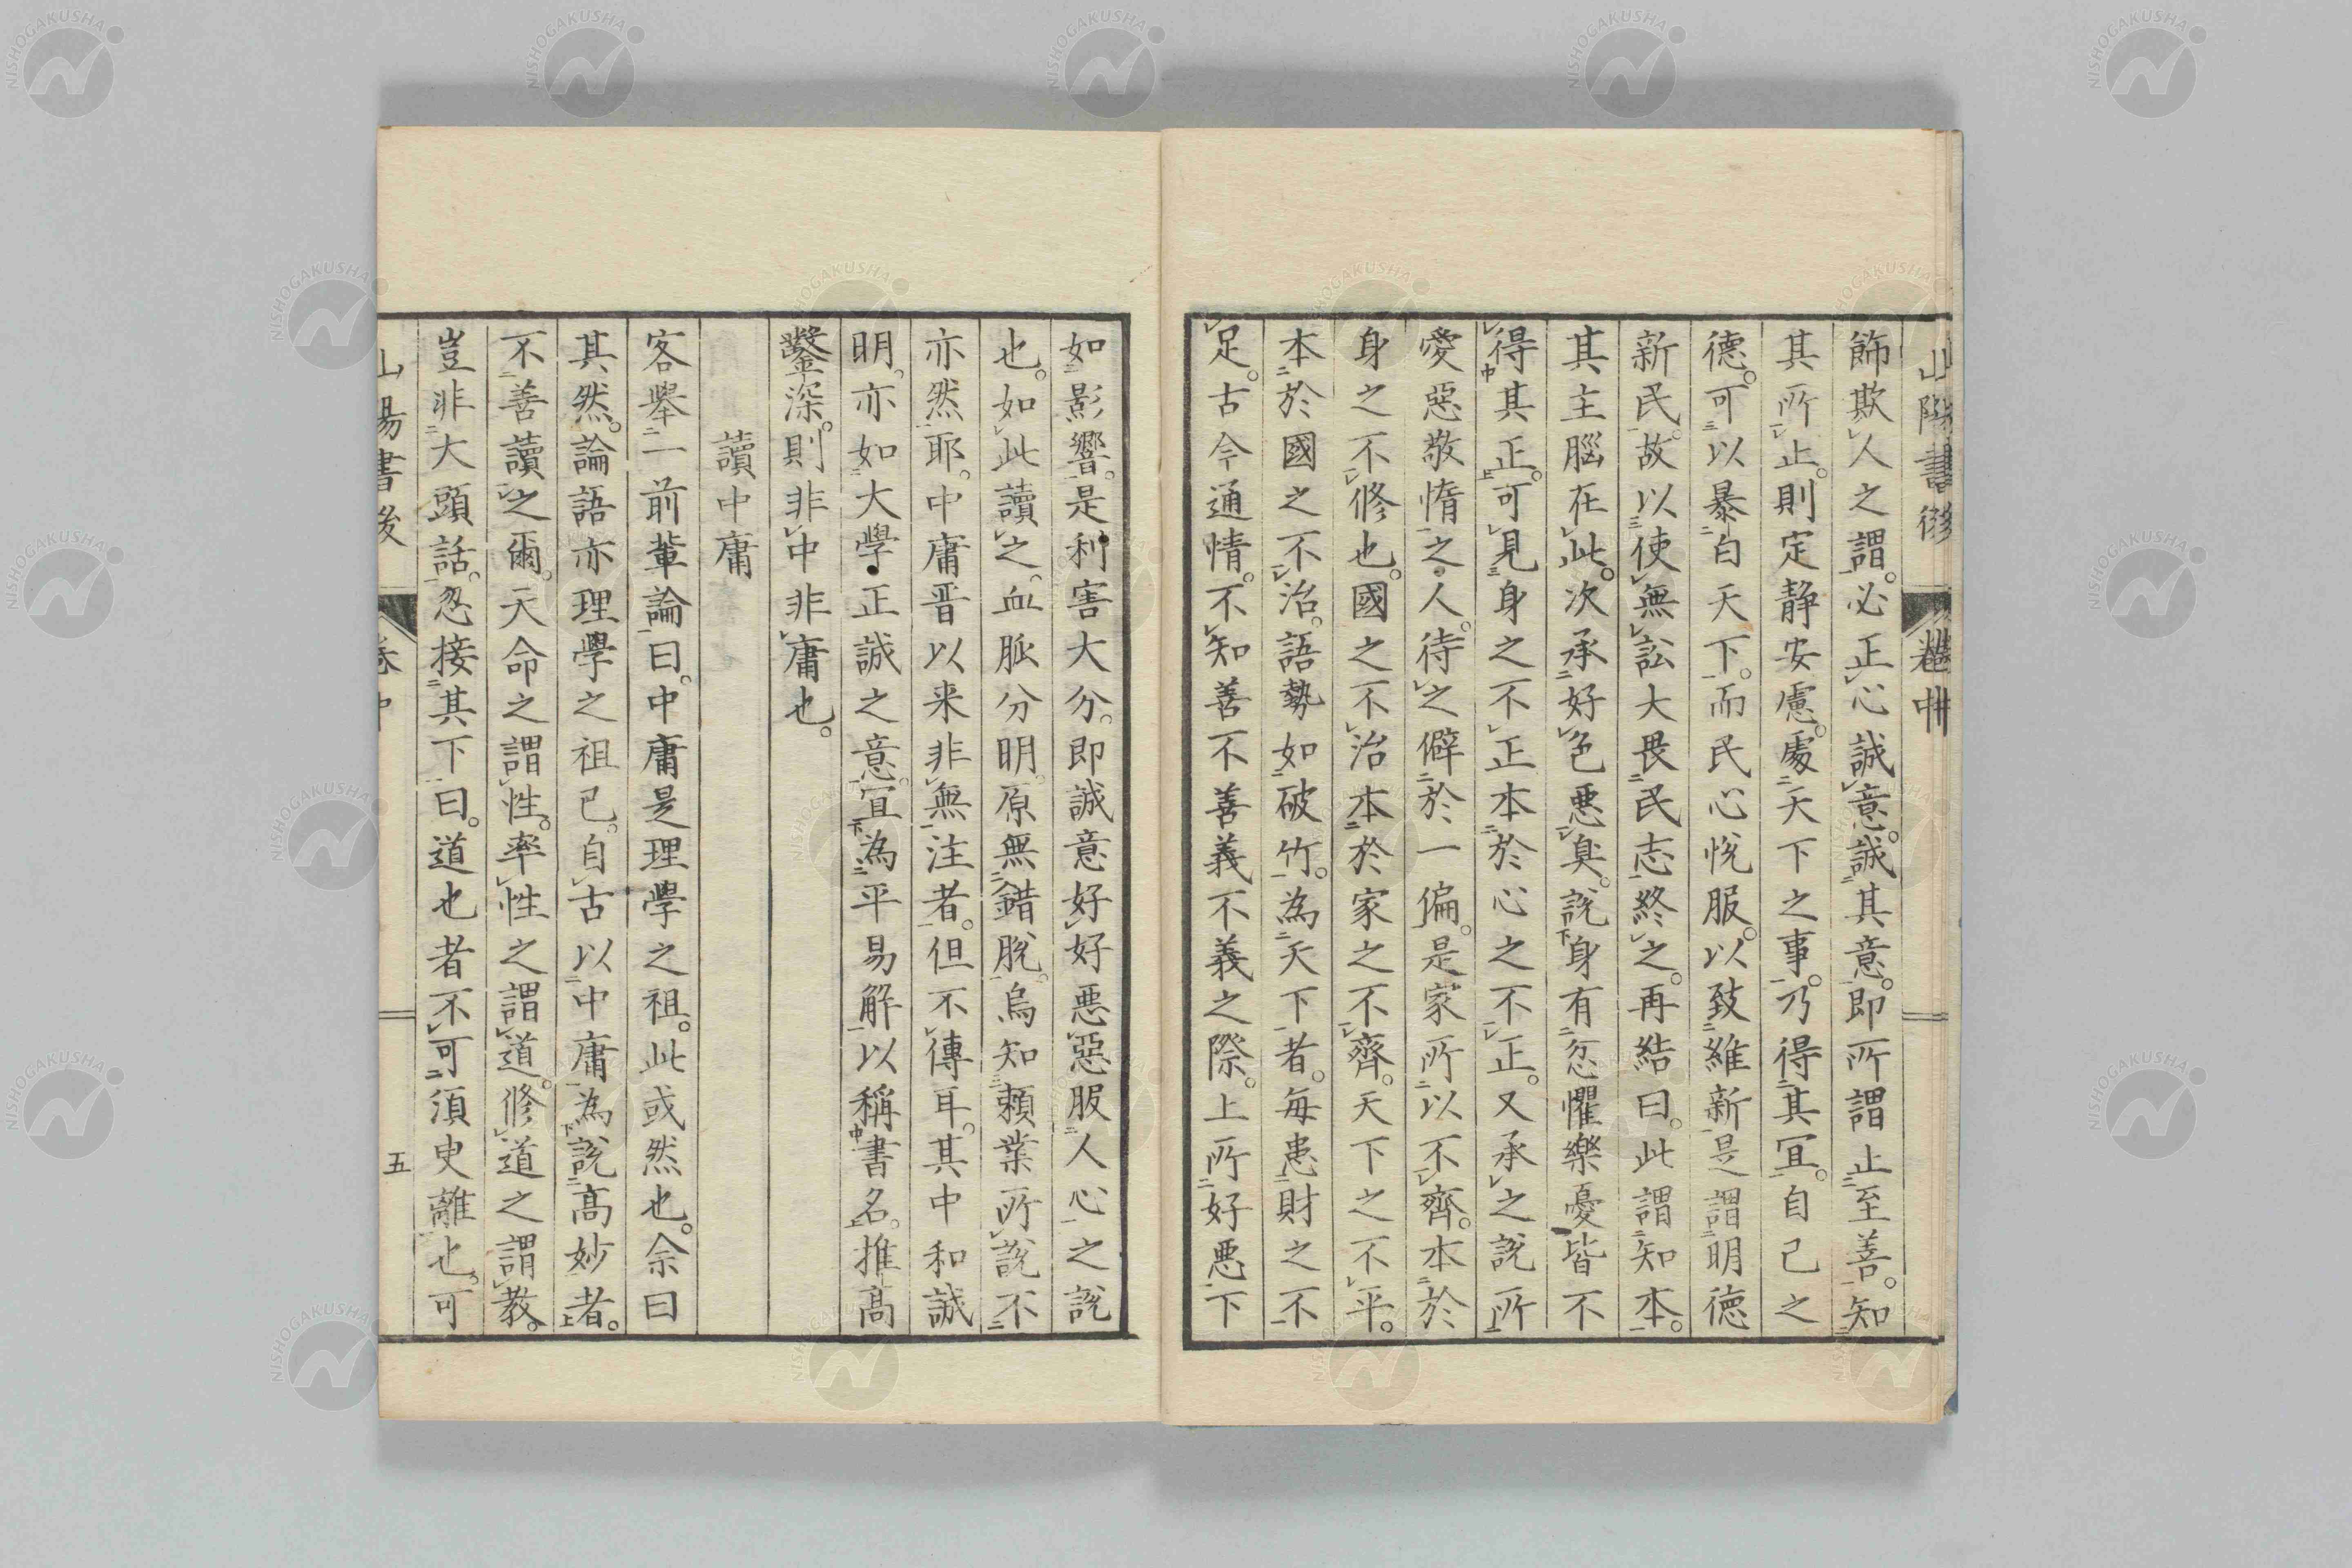 山陽書後
卷中
飾欺人之謂。必正心誠意。誠其意。即所謂止至善。知
其所止。則定静安慮。處天下之事。乃得其宜。自己之
德。可以暴白天下。而民心悅服。以致維新。是謂明德
新民。故以使無訟大畏民志終之。再結曰。此謂知本。
其主腦在此。次承好色惡臭。說身有忿懼樂憂皆不
得其正。可見身之不正本於心之不正。又承之說所
愛惡敬惰之人。待之僻於一偏。是家所以不齊。本於
身之不修也。國之不治本於家之不齊。天下之不平。
本於國之不治。語勢如破竹。為天下者。每患財之不
足。古今通情。不知善不善義不義之際。上所好惡下
如影響。是利害大分。即誠意好好惡惡服人心之說
也。如此讀之。血脈分明。原無錯脫。烏知賴業所說不
亦然耶。中庸晋以来非無注者。但不傳耳。其中和誠
明。亦如大學正誠之意。宜為平易解以稱書名。推高
鑿深。則非中非庸也。
讀中庸
客舉一前輩論曰。中庸是理學之祖。此或然也。余曰
其然。論語亦理學之祖已。自古以中庸為說高妙者。
不善讀之爾。天命之謂性。率性之謂道。修道之謂教。
豈非大頭話。忽接其下曰。道也者不可須臾離也。可
山陽書後
卷中
五
NISHOGAKUSHA